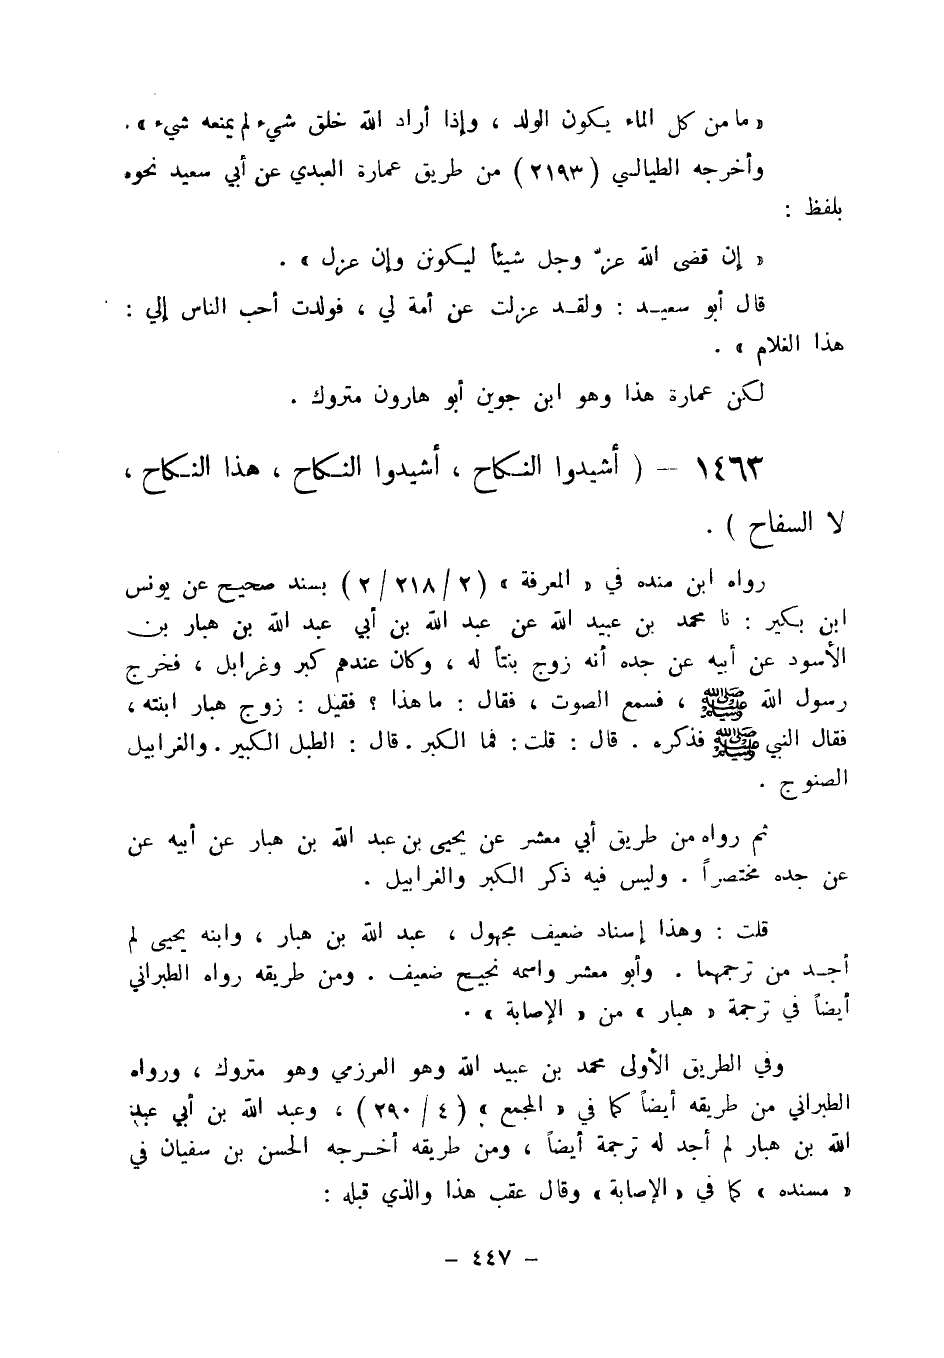 « ما من كل الماء يكون الولد ، وإذا أراد الله خلق شيء لم يمنعه شيء » .
وأخرجه الطيالسي ( ٢١٩٣ ) من طريق عمارة العبدي عن أبي سعيد نحوه
بلفظ :
« إن قضى الله عزّ وجل شيئاً ليكونن وإن عزل » .
قال أبو سعيد : ولقد عزلت عن أمة لي ، فولدت أحب الناس إلي :
هذا الغلام » .
لكن عمارة هذا وهو ابن جوين أبو هارون متروك .
١٤٦٣ – ( أشيدوا النكاح ، أشيدوا النكاح ، هذا النكاح ،
لا السفاح ) .
رواه ابن منده في « المعرفة » ( ٢ / ٢١٨ / ٢ ) بسند صحيح عن يونس
ابن بكير : نا محمد بن عبيد الله عن عبد الله بن أبي عبد الله بن هبار بن
الأسود عن أبيه عن جده أنه زوج بنتاً له ، وكان عندهم كبر وغرابل ، فخرج
رسول الله ﷺ ، فسمع الصوت ، فقال : ما هذا ؟ فقيل : زوج هبار ابنته ،
فقال النبي ﷺ فذكره . قال : قلت : فما الكبر . قال : الطبل الكبير . والغرابيل
الصنوج .
ثم رواه من طريق أبي معشر عن يحيى بن عبد الله بن هبار عن أبيه عن
عن جده مختصراً . وليس فيه ذكر الكبر والغرابيل .
قلت : وهذا إسناد ضعيف مجهول ، عبد الله بن هبار ، وابنه يحيى لم
أجد من ترجمهما . وأبو معشر واسمه نجيح ضعيف . ومن طريقه رواه الطبراني
أيضاً في ترجمة « هبار » من « الإصابة » .
وفي الطريق الأولى محمد بن عبيد الله وهو العرزمي وهو متروك ، ورواه
الطبراني من طريقه أيضاً كما في « المجمع » ( ٤ / ٢٩٠ ) ، وعبد الله بن أبي عبد
الله بن هبار لم أجد له ترجمة أيضاً ، ومن طريقه أخرجه الحسن بن سفيان في
« مسنده » كما في « الإصابة » وقال عقب هذا والذي قبله :
– ٤٤٧ –